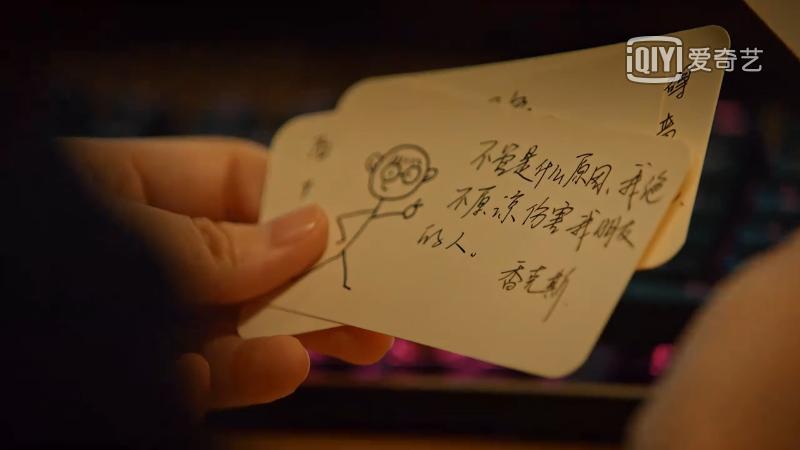 iQIYI 爱奇艺
不管是什么原因,我绝
不原谅伤害我朋友
的人。
香克斯